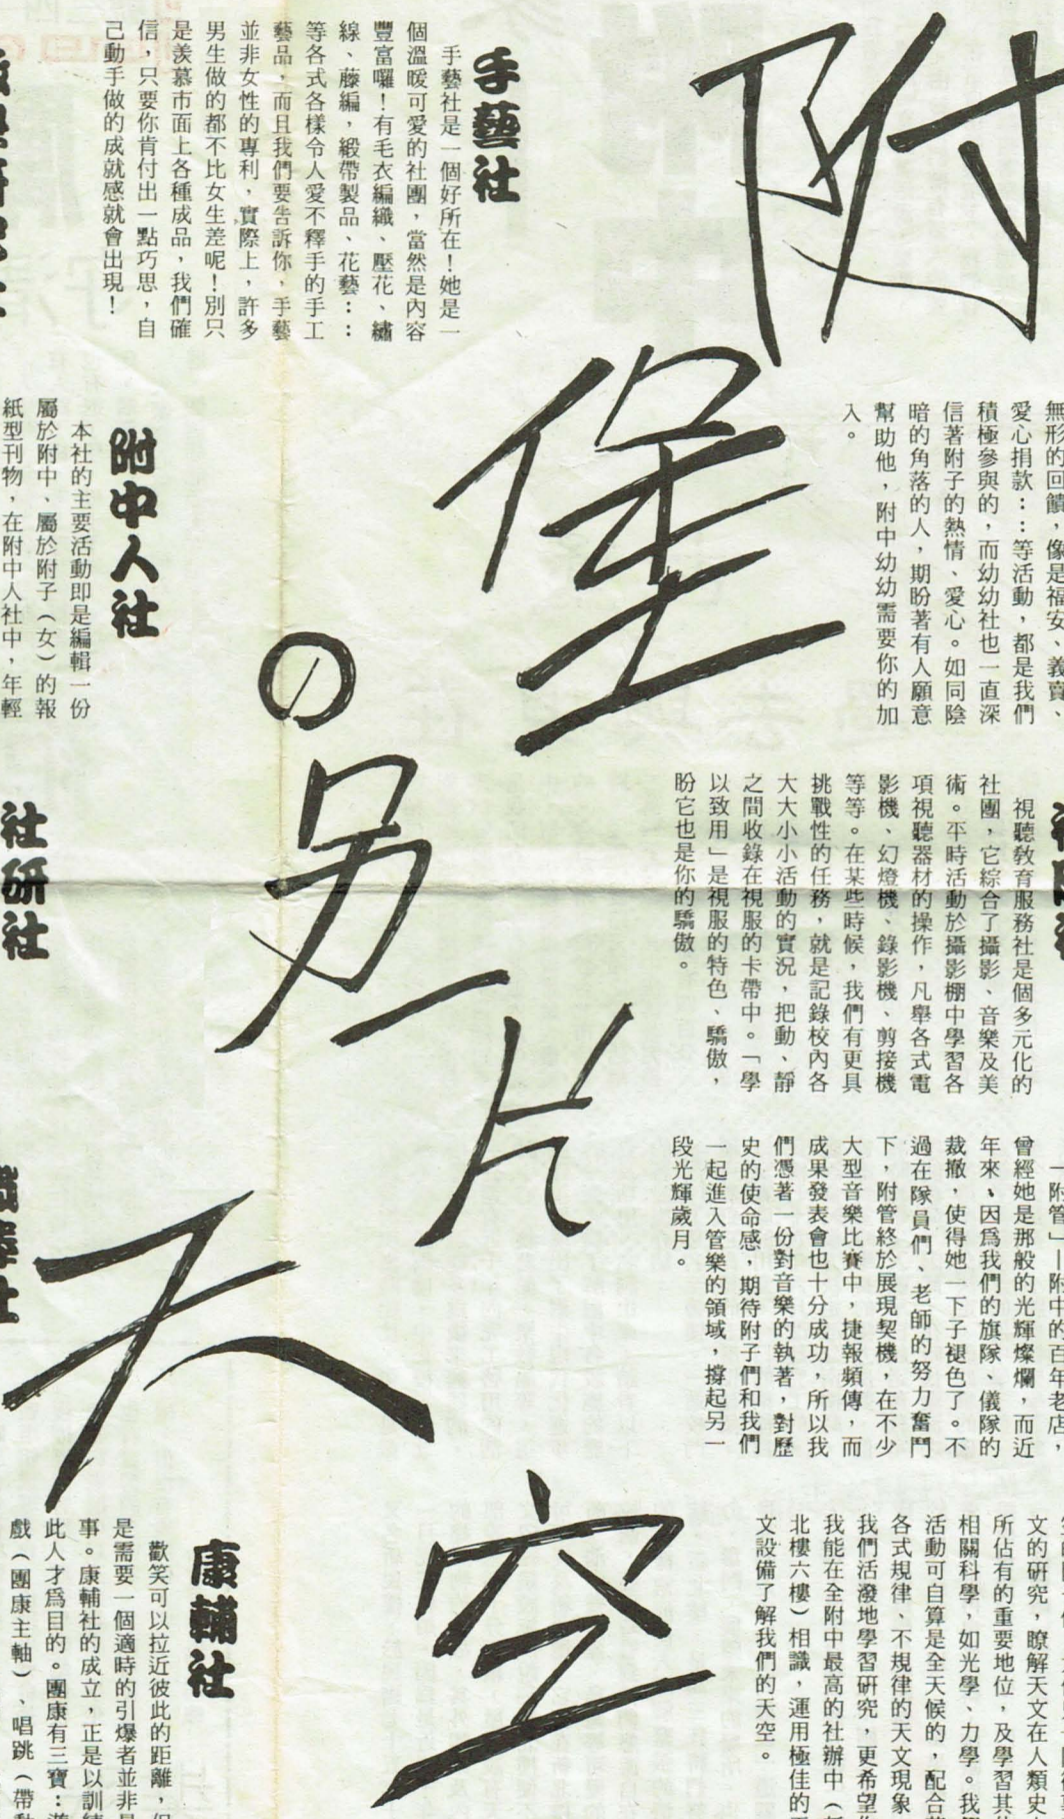 附堡の另一片天空
無形的回饋，像是福安、義賣、
愛心捐款：：等活動，都是我們
積極參與的，而幼幼社也一直深
信著附子的熱情、愛心。如同陰
暗的角落的人，期盼著有人願意
幫助他，附中幼幼需要你的加
入。
視聽教育服務社是個多元化的
社團，它綜合了攝影、音樂及美
術。平時活動於攝影棚中學習各
項視聽器材的操作，凡舉各式電
影機、幻燈機、錄影機、剪接機
等等。在某些時候，我們有更具
挑戰性的任務，就是記錄校內各
大大小小活動的實況，把動、靜
之間收錄在視服的卡帶中。「學
以致用」是視服的特色、驕傲，
盼它也是你的驕傲。
「附管」—附中的百年老店，
曾經她是那般的光輝燦爛，而近
年來、因爲我們的旗隊、儀隊的
裁撤，使得她一下子褪色了。不
過在隊員們、老師的努力奮鬥
下，附管終於展現契機，在不少
大型音樂比賽中，捷報頻傳，而
成果發表會也十分成功，所以我
們憑著一份對音樂的執著，對歷
史的使命感，期待附子們和我們
一起進入管樂的領域，撐起另一
段光輝歲月。
文的研究，瞭解天文在人類史
所佔有的重要地位，及學習其
相關科學，如光學、力學。我
活動可自算是全天候的，配合
各式規律、不規律的天文現象
我們活潑地學習研究，更希望
我能在全附中最高的社辦中（
北樓六樓）相識，運用極佳的
文設備了解我們的天空。
手藝社
手藝社是一個好所在！她是一
個溫暖可愛的社團，當然是內容
豐富囉！有毛衣編織、壓花、繡
線、藤編，緞帶製品、花藝：：
等各式各樣令人愛不釋手的手工
藝品，而且我們要告訴你，手藝
並非女性的專利，實際上，許多
男生做的都不比女生差呢！別只
是羨慕市面上各種成品，我們確
信，只要你肯付出一點巧思，自
己動手做的成就感就會出現！
附中人社
本社的主要活動即是編輯一份
屬於附中、屬於附子（女）的報
紙型刊物，在附中人社中，年輕
社研社
康輔社
歡笑可以拉近彼此的距離，但
是需要一個適時的引爆者並非易
事。康輔社的成立，正是以訓練
此人才爲目的。團康有三寶：遊
戲（團康主軸）、唱跳（帶動